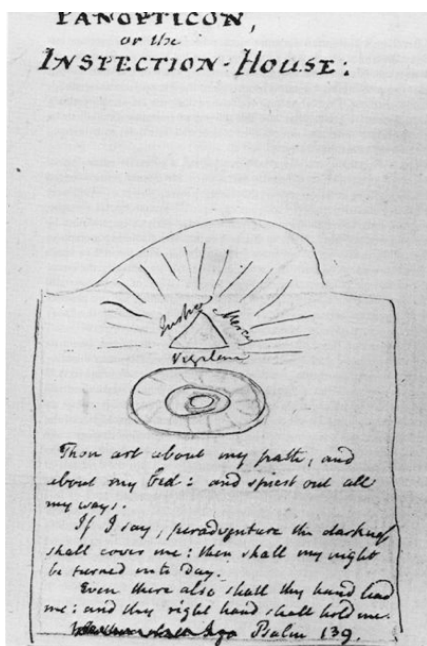 PANOPTICON,
or the
INSPECTION-HOUSE:
Justice
Mercy
Vigilance
Thou art about my path, and
about my bed: and spiest out all
my ways.
If I say, peradventure the darkness
shall cover me: then shall my night
be turned into Day.
Even there also shall thy hand lead
me: and thy right hand shall hold me.
Psalm 139.